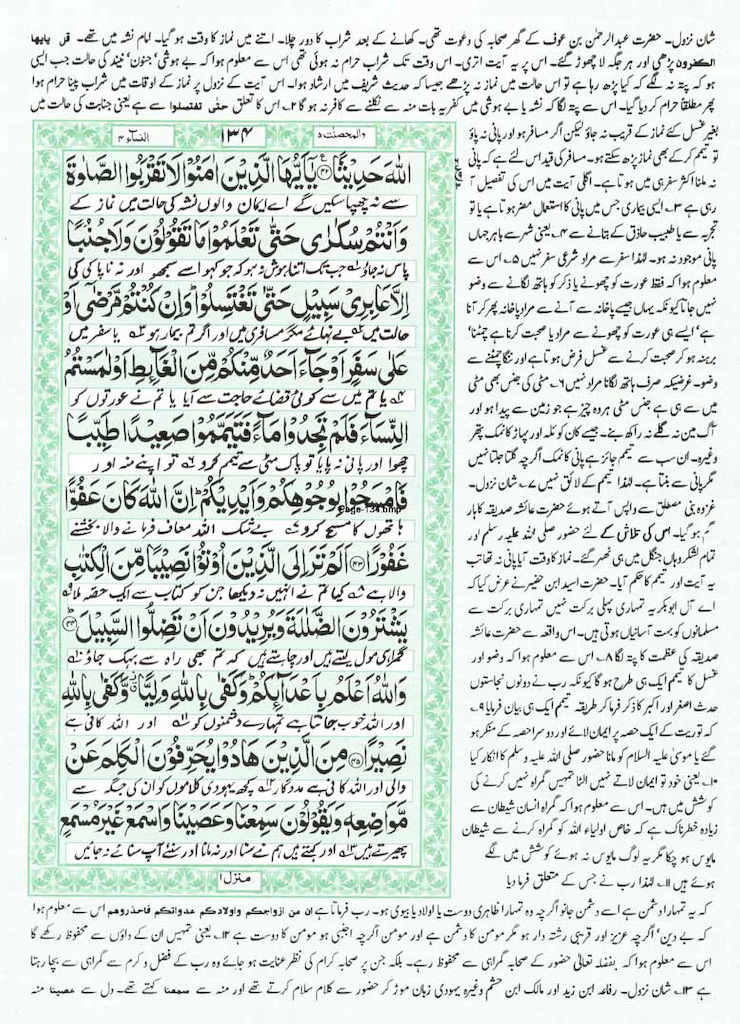 شان نزول۔ حضرت عبدالرحمٰن بن عوف کے گھر صحابہ کی دعوت تھی۔ کھانے کے بعد شراب کا دور چلا۔ اتنے میں نماز کا وقت ہو گیا۔ امام نشہ میں تھے۔ قل یایھا
الکفرون پڑھی اور ہر جگہ لا چھوڑ گئے۔ اس پر یہ آیت اتری۔ اس وقت تک شراب حرام نہ ہوئی تھی اس سے معلوم ہوا کہ بے ہوشی' جنون' نیند کی حالت جب ایسی
ہو کہ پتہ نہ لگے کہ کیا پڑھ رہا ہے تو اس حالت میں نماز نہ پڑھے جیسا کہ حدیث شریف میں ارشاد ہوا۔ اس آیت کے نزول پر نماز کے اوقات میں شراب پینا حرام ہوا
پھر مطلقاً حرام کر دیا گیا۔ اس سے پتہ لگا کہ نشہ یا بے ہوشی میں کفریہ بات منہ سے نکلنے سے کافر نہ ہو گا ۲؎ اس کا تعلق حتی تغتسلوا سے ہے یعنی جنابت کی حالت میں
والمحصنت ۵
۱۳۴
النساء ۴
اللّٰهَ حَدِيْثًا ﴿۴۲﴾ يٰۤاَيُّهَا الَّذِيْنَ اٰمَنُوْا لَا تَقْرَبُوا الصَّلٰوةَ
سے نہ چھپا سکیں گے اے ایمان والوں نشہ کی حالت میں نماز کے
وَاَنْتُمْ سُكٰرٰى حَتّٰى تَعْلَمُوْا مَا تَقُوْلُوْنَ وَلَا جُنُبًا
پاس نہ جاؤ جب تک اتنا ہوش نہ ہو کہ جو کہو اسے سمجھو اور نہ ناپاکی کی
اِلَّا عَابِرِيْ سَبِيْلٍ حَتّٰى تَغْتَسِلُوْا ؕ وَاِنْ كُنْتُمْ مَّرْضٰۤى اَوْ
حالت میں بے نہائے مگر مسافری میں اور اگر تم بیمار ہو یا سفر میں
عَلٰى سَفَرٍ اَوْ جَآءَ اَحَدٌ مِّنْكُمْ مِّنَ الْغَآئِطِ اَوْ لٰمَسْتُمُ
یا تم میں سے کوئی قضائے حاجت سے آیا یا تم نے عورتوں کو
النِّسَآءَ فَلَمْ تَجِدُوْا مَآءً فَتَيَمَّمُوْا صَعِيْدًا طَيِّبًا
چھوا اور پانی نہ پایا تو پاک مٹی سے تیمم کرو تو اپنے منہ اور
فَامْسَحُوْا بِوُجُوْهِكُمْ وَاَيْدِيْكُمْ ؕ اِنَّ اللّٰهَ كَانَ عَفُوًّا
Page-134.bmp
ہاتھوں کا مسح کرو بے شک اللہ معاف فرمانے والا بخشنے
غَفُوْرًا ﴿۴۳﴾ اَلَمْ تَرَ اِلَى الَّذِيْنَ اُوْتُوْا نَصِيْبًا مِّنَ الْكِتٰبِ
والا ہے کیا تم نے انہیں نہ دیکھا جن کو کتاب سے ایک حصہ ملا
يَشْتَرُوْنَ الضَّلٰلَةَ وَيُرِيْدُوْنَ اَنْ تَضِلُّوا السَّبِيْلَ ﴿۴۴﴾
گمراہی مول لیتے ہیں اور چاہتے ہیں کہ تم بھی راہ سے بہک جاؤ
وَاللّٰهُ اَعْلَمُ بِاَعْدَآئِكُمْ ؕ وَكَفٰى بِاللّٰهِ وَلِيًّا ۗ وَّكَفٰى بِاللّٰهِ
اور اللہ خوب جانتا ہے تمہارے دشمنوں کو اور اللہ کافی ہے
نَصِيْرًا ﴿۴۵﴾ مِنَ الَّذِيْنَ هَادُوْا يُحَرِّفُوْنَ الْكَلِمَ عَنْ
والی اور اللہ کافی ہے مددگار کچھ یہودی کلاموں کو ان کی جگہ سے
مَّوَاضِعِهٖ وَيَقُوْلُوْنَ سَمِعْنَا وَعَصَيْنَا وَاسْمَعْ غَيْرَ مُسْمَعٍ
پھیرتے ہیں اور کہتے ہیں ہم نے سنا اور نہ مانا اور سنئے آپ سنائے نہ جائیں
منزل ۱
بغیر غسل کئے نماز کے قریب نہ جاؤ لیکن اگر مسافر ہو اور پانی نہ پاؤ
تو تیمم کر کے بھی نماز پڑھ سکتے ہو۔ مسافر کی قید اس لئے ہے کہ پانی
نہ ملنا اکثر سفر ہی میں ہوتا ہے۔ اگلی آیت میں اس کی تفصیل آ
رہی ہے ۳؎ ایسی بیماری جس میں پانی کا استعمال مضر ہو تا ہے یا تو
تجربہ سے یا طبیب حاذق کے بتانے سے ۴؎ یعنی شہر سے باہر جہاں
پانی موجود نہ ہو۔ لہٰذا سفر سے مراد شرعی سفر نہیں ۵؎ اس سے
معلوم ہوا کہ فقط عورت کو چھونے یا ذکر کو ہاتھ لگانے سے وضو
نہیں جاتا کیونکہ یہاں جیسے پاخانہ سے آنے سے مراد پاخانہ پھر کر آنا
ہے' ایسے ہی عورت کو چھونے سے مراد یا صحبت کرنا ہے چمٹنا'
برہنہ ہو کر صحبت کرنے سے غسل فرض ہوتا ہے اور ننگا چمٹنے سے
وضو۔ غرضیکہ صرف ہاتھ لگانا مراد نہیں ۶؎ مٹی کی جنس بھی مٹی
میں سے ہی ہے جنس مٹی ہر وہ چیز ہے جو زمین سے پیدا ہو اور
آگ میں نہ گلے نہ راکھ بنے۔ جیسے کان کوئلہ اور پہاڑ کا نمک پتھر
وغیرہ۔ ان سب سے تیمم جائز ہے پانی کا نمک اگرچہ گلتا جلتا نہیں
مگر پانی سے بنتا ہے۔ لہٰذا تیمم کے لائق نہیں ۷؎ شان نزول۔
غزوہ بنی مصطلق سے واپس آتے ہوئے حضرت عائشہ صدیقہ کا ہار
گم ہو گیا۔ اس کی تلاش کے لئے حضور صلی اللہ علیہ وسلم اور
تمام لشکر وہاں جنگل میں ہی ٹھہر گئے۔ نماز کا وقت آیا پانی نہ تھا تب
یہ آیت اور تیمم کا حکم آیا۔ حضرت اسید ابن حضیر نے عرض کیا کہ
اے آل ابوبکر یہ تمہاری پہلی برکت نہیں تمہاری برکت سے
مسلمانوں کو بہت آسانیاں ہوتی ہیں۔ اس واقعہ سے حضرت عائشہ
صدیقہ کی عظمت کا پتہ لگا ۸؎ اس سے معلوم ہوا کہ وضو اور
غسل کا تیمم ایک ہی طرح ہو گا کیونکہ رب نے دونوں نجاستوں
حدث اصغر اور اکبر کا ذکر فرما کر طریقہ تیمم ایک ہی بیان فرمایا ۹؎
کہ توریت کے ایک حصہ پر ایمان لائے اور دوسرا حصہ کے منکر ہو
گئے یا موسیٰ علیہ السلام کو مانا حضور صلی اللہ علیہ وسلم کا انکار کیا
۱۰؎ یعنی خود تو ایمان لاتے نہیں الٹا تمہیں گمراہ نہیں کرنے کی
کوشش میں ہیں۔ اس سے معلوم ہوا کہ گمراہ انسان شیطان سے
زیادہ خطرناک ہے کہ خاص اولیاء اللہ کو گمراہ کرنے سے شیطان
مایوس ہو چکا مگر یہ لوگ مایوس نہ ہوئے کوشش میں لگے
ہوئے ہیں ۱۱؎ لہٰذا رب نے جس کے متعلق فرما دیا
کہ یہ تمہارا دشمن ہے اسے دشمن جانو اگرچہ وہ تمہارا ظاہری دوست یا اولاد یا بیوی ہو۔ رب فرماتا ہے ان من ازواجکم واولادکم عدوالکم فاحذروھم اس سے معلوم ہوا
کہ بے دین' اگرچہ عزیز اور قریبی رشتہ دار ہو مگر مومن کا دشمن ہے اور مومن اگرچہ اجنبی ہو مومن کا دوست ہے ۱۲؎ یعنی تمہیں ان کے داؤں سے محفوظ رکھے گا
اس سے معلوم ہوا کہ بفضلہ تعالیٰ حضور کے صحابہ گمراہی سے محفوظ رہے۔ بلکہ جن پر صحابہ کرام کی نظر عنایت ہو جائے وہ رب کے فضل و کرم سے گمراہی سے بچا رہتا
ہے ۱۳؎ شان نزول۔ رفاعہ ابن زید اور مالک ابن حشم وغیرہ یہودی زبان موڑ کر حضور سے کلام سلام کرتے تھے اور منہ سے سمعنا کہتے تھے۔ دل سے عصینا منہ